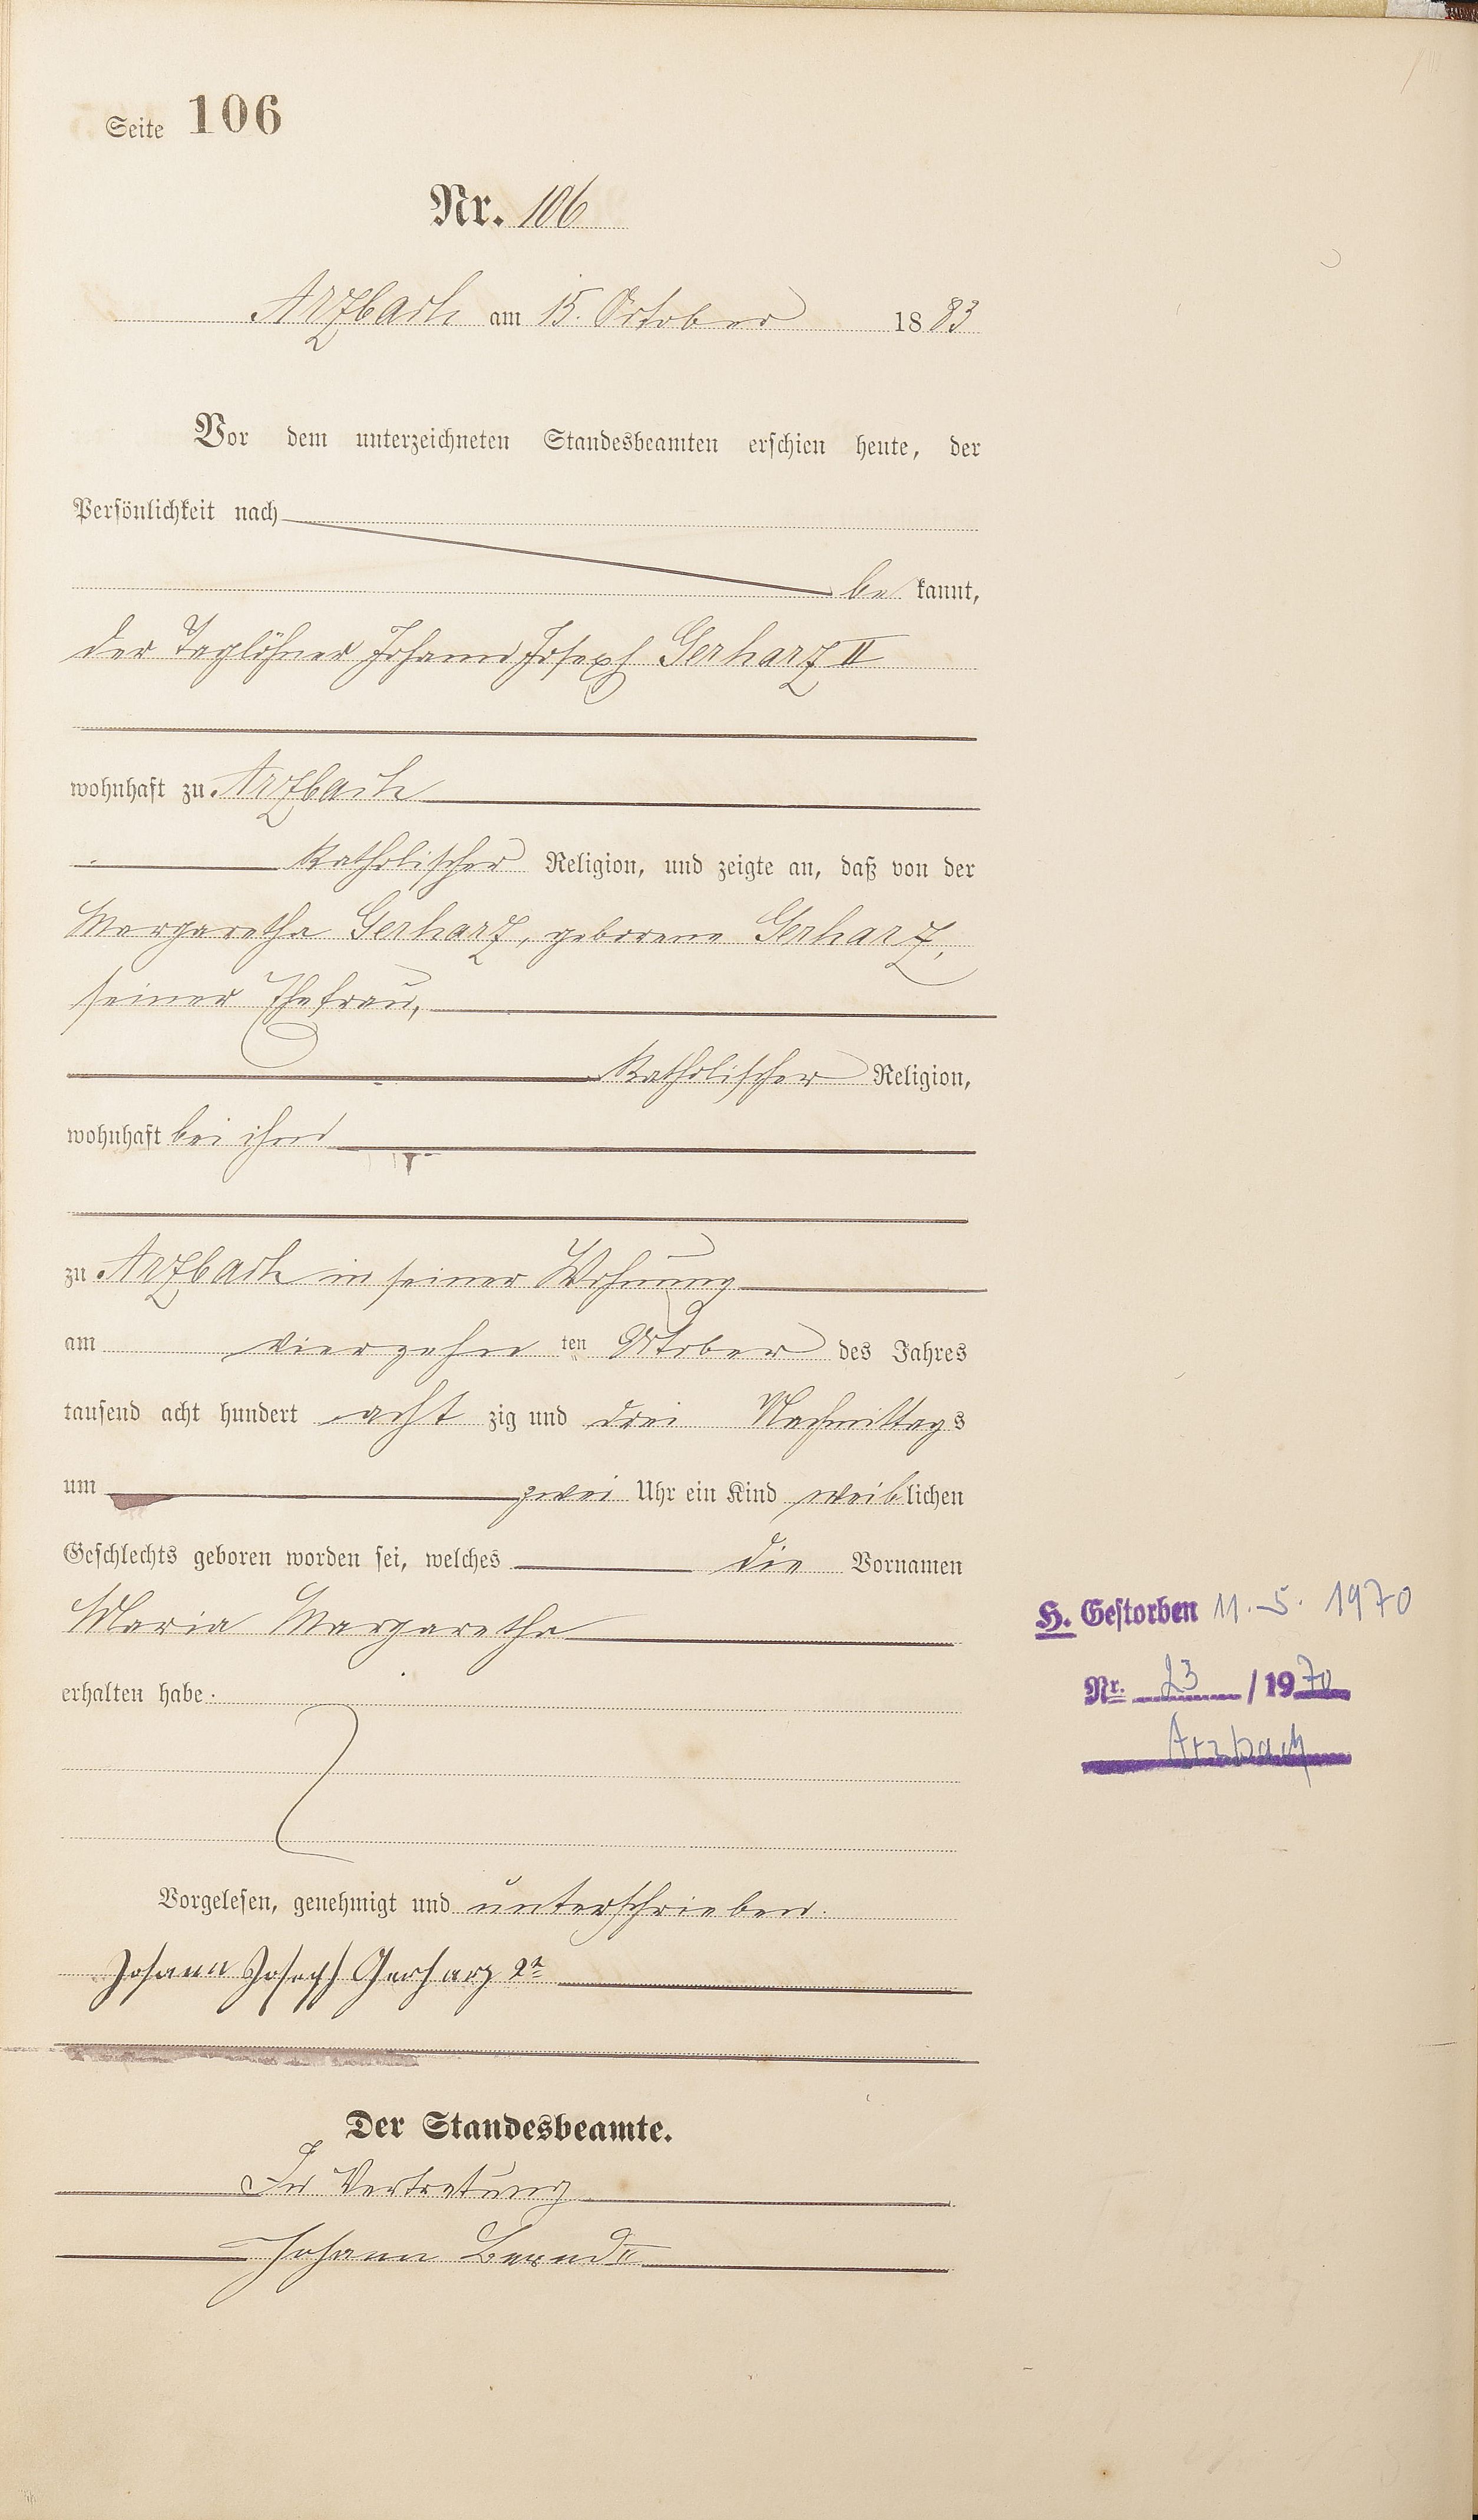 Seite 106
Nr. 106
Arzbach am 15. October 1883
Vor dem unterzeichneten Standesbeamten erschien heute, der
Persönlichkeit nach
be kannt,
der Taglöhner Johann Joseph Gerharz II
wohnhaft zu Arzbach
katholischer Religion, und zeigte an, daß von der
Margaretha Gerharz, geborene Gerharz,
seiner Ehefrau,
katholischer Religion,
wohnhaft bei ihm
zu Arzbach in seiner Wohnung
am vierzehn ten October des Jahres
tausend acht hundert acht zig und drei Nachmittags
um zwei Uhr ein Kind weiblichen
Geschlechts geboren worden sei, welches die Vornamen
Maria Margaretha
erhalten habe.
Vorgelesen, genehmigt und unterschrieben.
Johann Joseph Gerharz 2t
Der Standesbeamte.
In Vertretung
Johann
H. Gestorben 11.5.1970
Nr. 23 / 1970
Arzbach